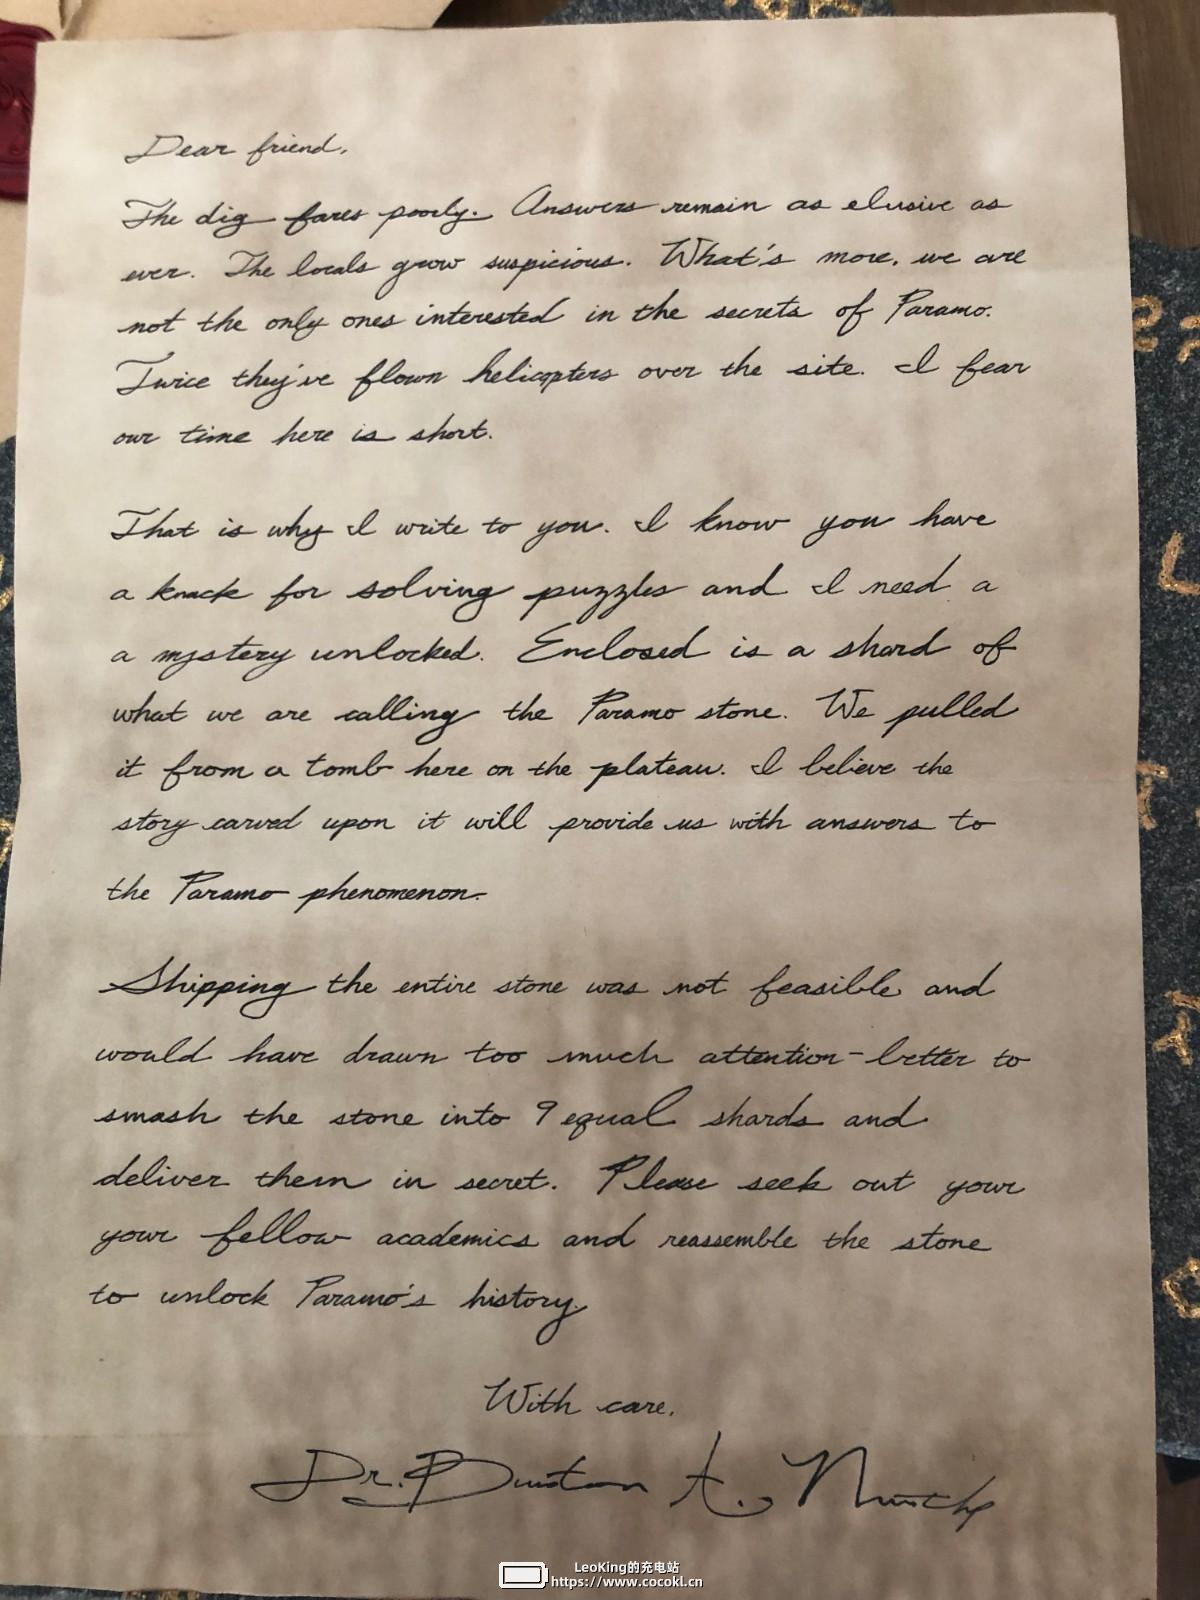 Dear friend,
The dig fares poorly. Answers remain as elusive as
ever. The locals grow suspicious. What's more, we are
not the only ones interested in the secrets of Paramo.
Twice they've flown helicopters over the site. I fear
our time here is short.
That is why I write to you. I know you have
a knack for solving puzzles and I need a
a mystery unlocked. Enclosed is a shard of
what we are calling the Paramo stone. We pulled
it from a tomb here on the plateau. I believe the
story carved upon it will provide us with answers to
the Paramo phenomenon.
Shipping the entire stone was not feasible and
would have drawn too much attention-better to
smash the stone into 9 equal shards and
deliver them in secret. Please seek out your
your fellow academics and reassemble the stone
to unlock Paramo's history.
With care,
Dr. A.
LeoKing的充电站
https://www.cocokl.cn